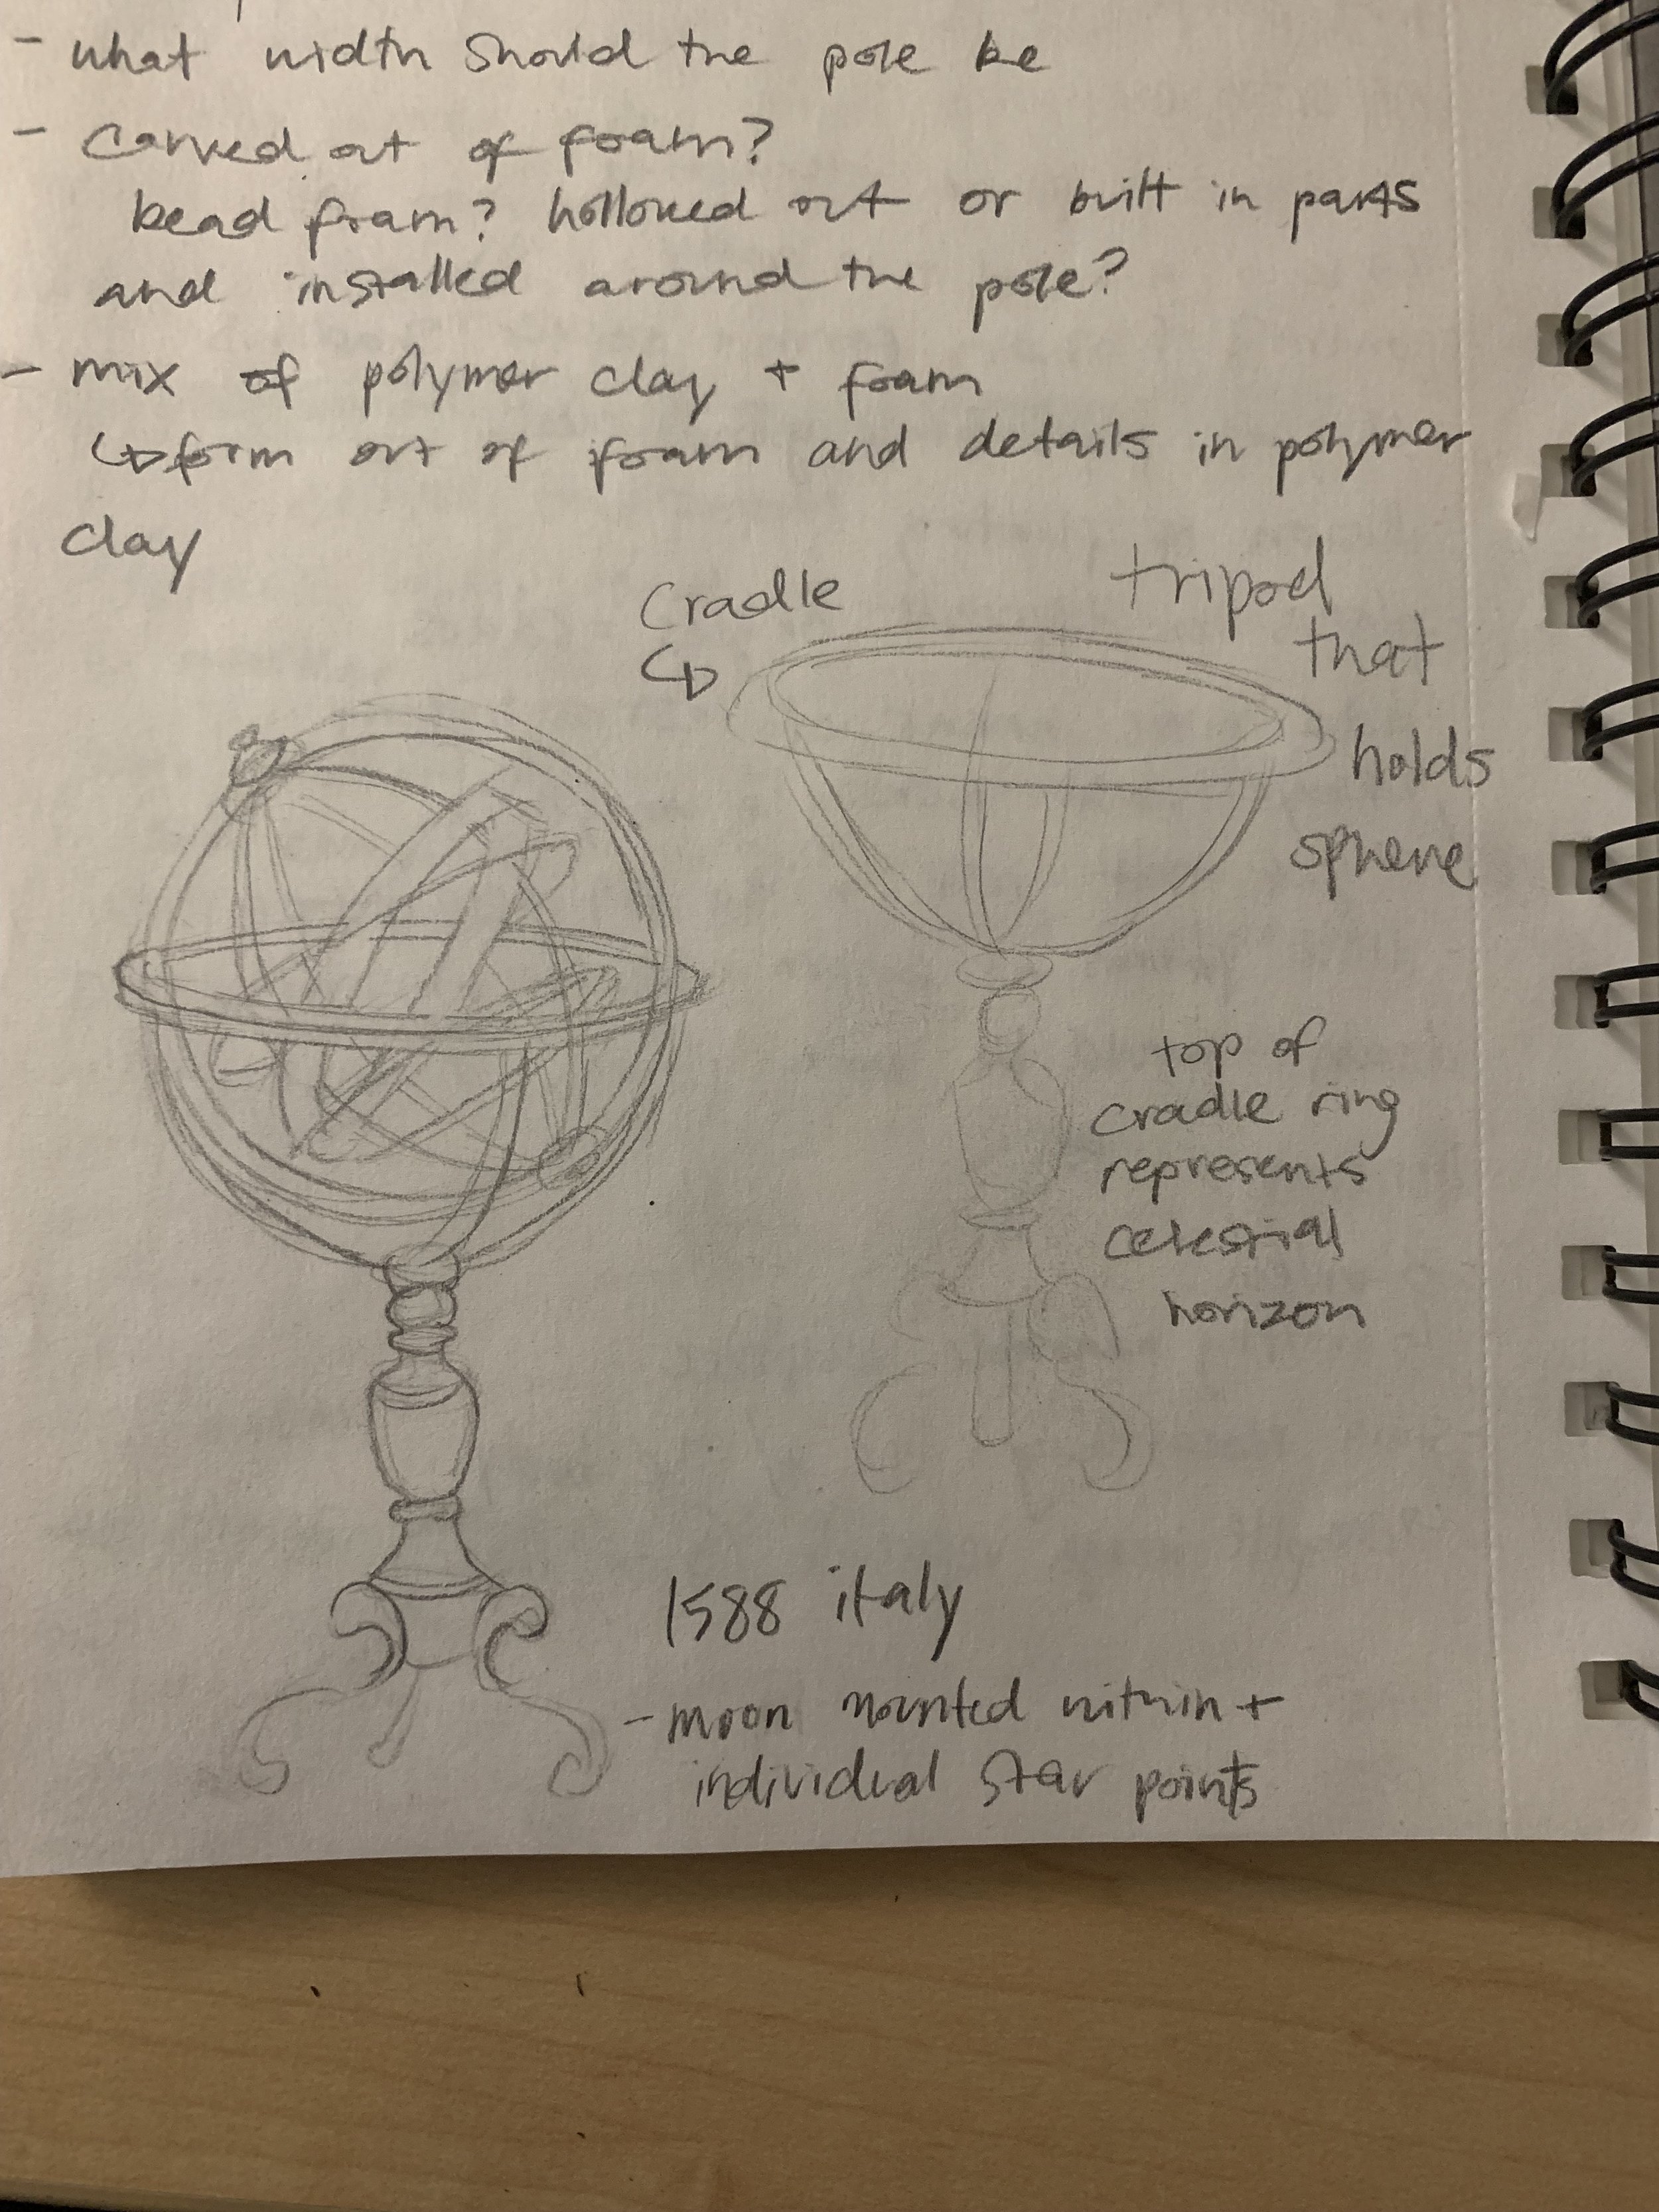 - what width should the pole be
- Carved out of foam?
bead foam? hollowed out or built in parts
and installed around the pole?
- mix of polymer clay + foam
↳ form out of foam and details in polymer
clay
Cradle
tripod
that
holds
sphere
top of
cradle ring
represents
celestial
horizon
1588 italy
- moon mounted within +
individual star points